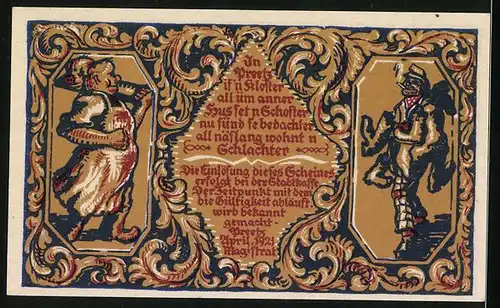 In
Preetz
is'n Kloster
all üm anner
Hus set n Schoster
nu sünd se bedachter
all näslang wohnt n
Schlachter
Die Einlösung dieses Scheines
erfolgt bei der Stadtkasse
Der Zeitpunkt mit dem
die Gültigkeit abläuft
wird bekannt
gemacht-
Preetz
April, 1921
Magistrat